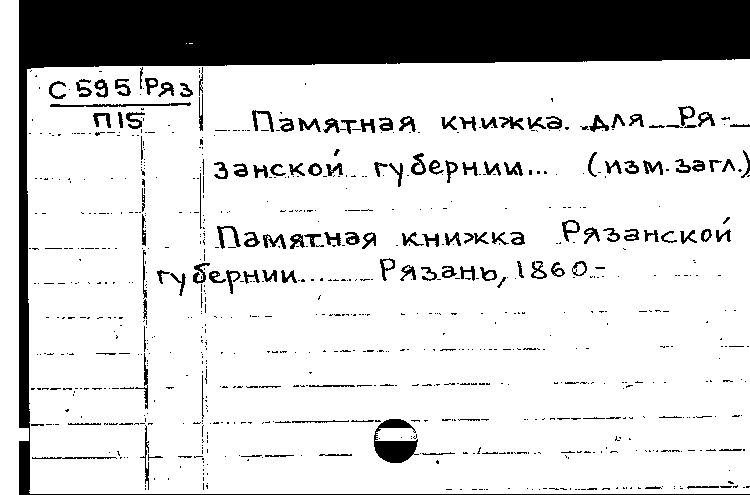 С 595 Ряз
П15
Памятная книжка для Ря-
занской губернии... (изм. загл.)
Памятная книжка Рязанской
губернии... Рязань, 1860-